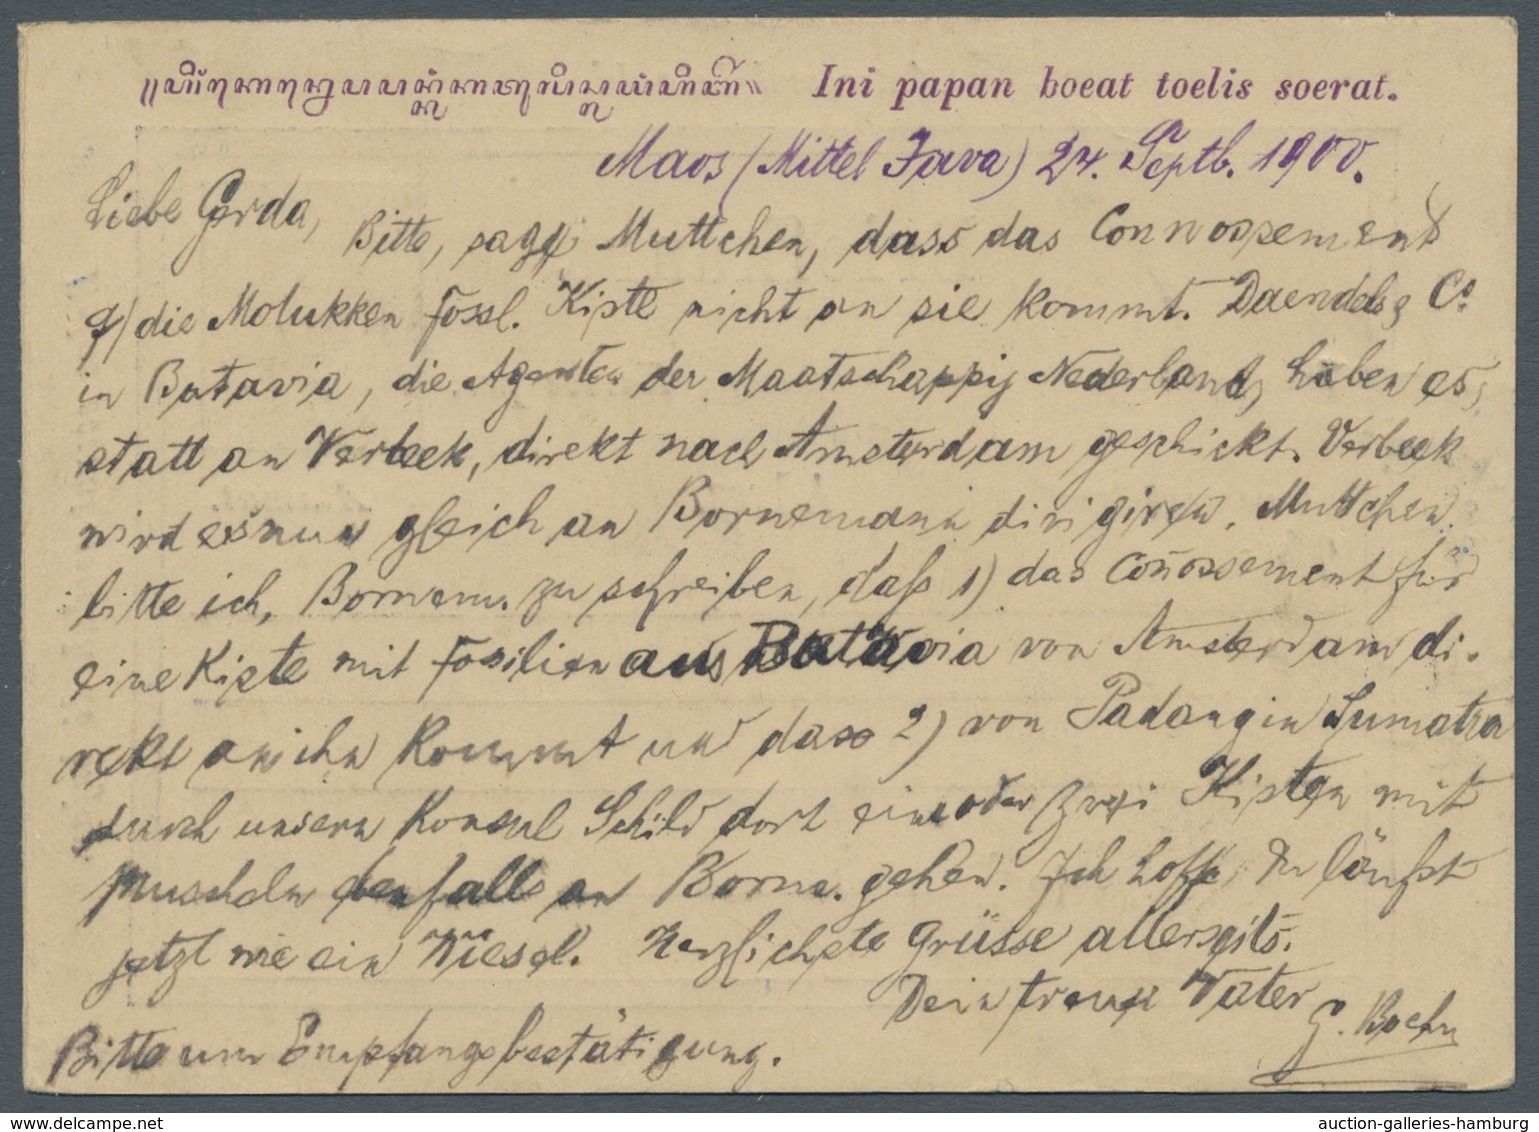 Ini papan boeat toelis soerat.
Maos (Mittel Java) 24. Septb. 1900.
Liebe Gerda,
Bitte, sage Muttchen, dass das Connossement
f/ die Molukken Fossl. Kiste nicht an sie kommt. Daendels & Co
in Batavia, die Agenten der Maatschappij Nederland, haben es,
statt an Verbeek, direkt nach Amsterdam geschickt. Verbeek
wird es nun gleich an Bornemann dirigiren. Muttchen
bitte ich, Bornem. zu schreiben, daß 1) das Coñossement für
eine Kiste mit Fossilien aus Batavia von Amsterdam di-
rekt an ihn kommt und dass 2) von Padang in Sumatra
durch unsern Konsul Schild dort ein oder zwei Kisten mit
Muscheln ebenfalls an Borne. gehen. Ich hoffe, Du läufst
jetzt wie ein Wiesel. Herzlichste Grüsse allerseits.
Dein treuer Vater
G. Boehm
Bitte um Empfangsbestätigung.
auction-galleries-hamburg